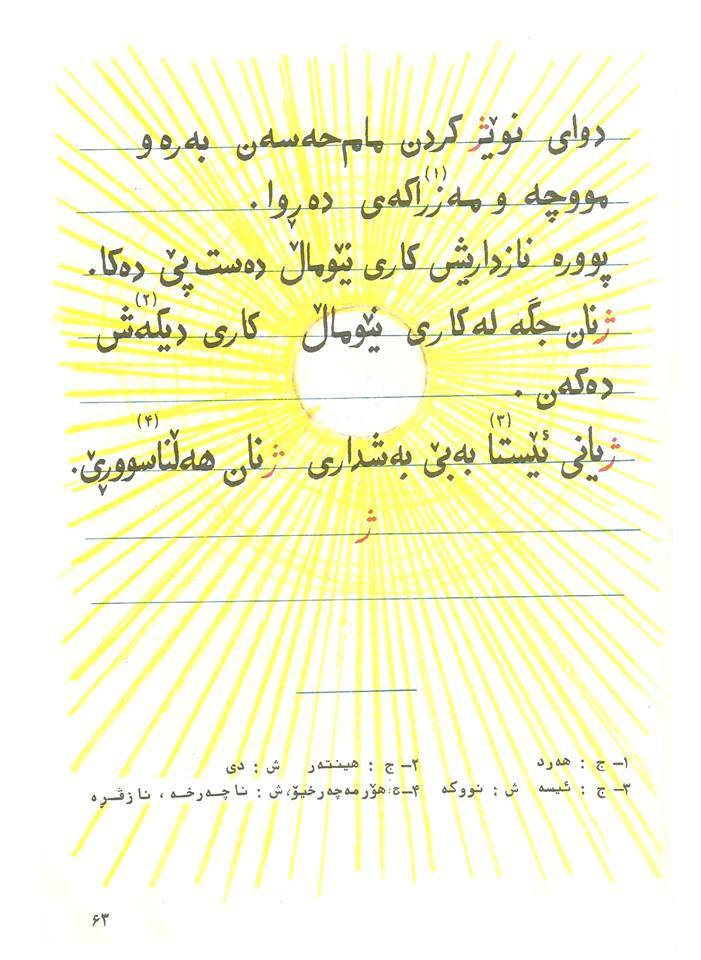 دوای نوێژ کردن مام حەسەن بەرەو
مووچە و مەزراکەی(۱) دەڕوا.
پوورە نازداریش کاری نێوماڵ دەست پێ دەکا.
ژنان جگە لە کاری نێوماڵ کاری دیکەش(۲)
دەکەن.
ژیانی ئێستا(۳) بەبێ بەشداری ژنان هەڵناسووڕێ(۴).
ژ
۱- ج : هەرد ۲- ج : هینتەر ش : دی
۳- ج : ئیسە ش : نووکە ۴- ج : هۆرمەچەرخیۆ، ش : ناچەرخە ، نازڤڕە
۶۳